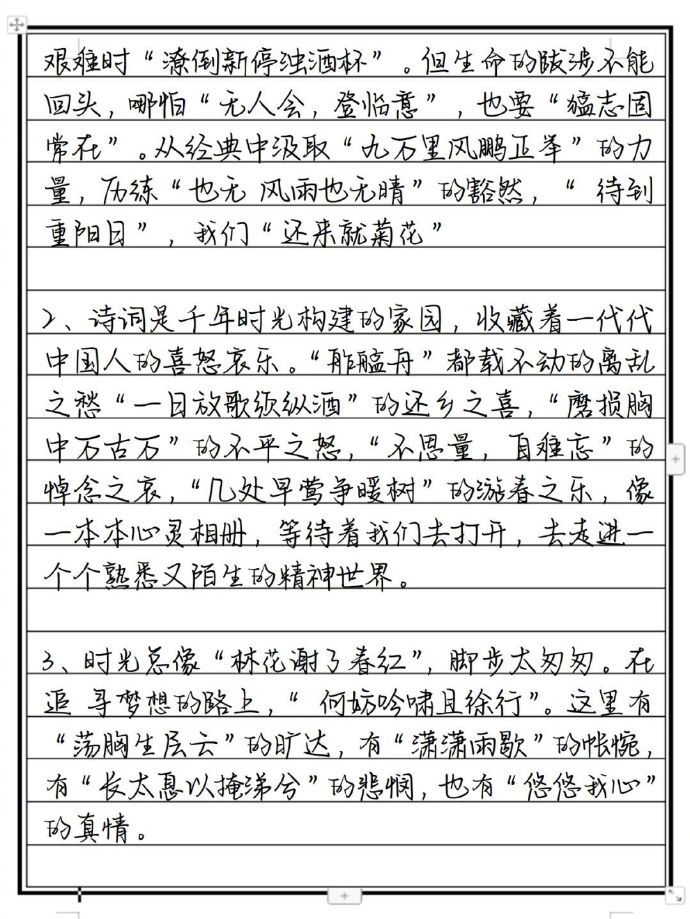 艰难时“潦倒新停浊酒杯”。但生命的跋涉不能
回头，哪怕“无人会，登临意”，也要“猛志固
常在”。从经典中汲取“九万里风鹏正举”的力
量，历练“也无 风雨也无晴”的豁然，“ 待到
重阳日”，我们“还来就菊花”
2、诗词是千年时光构建的家园，收藏着一代代
中国人的喜怒哀乐。“舴艋舟”都载不动的离乱
之愁“一日放歌须纵酒”的还乡之喜，“磨损胸
中万古刀”的不平之怒，“不思量，自难忘”的
悼念之哀，“几处早莺争暖树”的游春之乐，像
一本本心灵相册，等待着我们去打开，去走进一
个个熟悉又陌生的精神世界。
3、时光总像“林花谢了春红”，脚步太匆匆。在
追 寻梦想的路上，“ 何妨吟啸且徐行”。这里有
“荡胸生层云”的旷达，有“潇潇雨歇”的怅惋，
有“长太息以掩涕兮”的悲悯，也有“悠悠我心”
的真情。